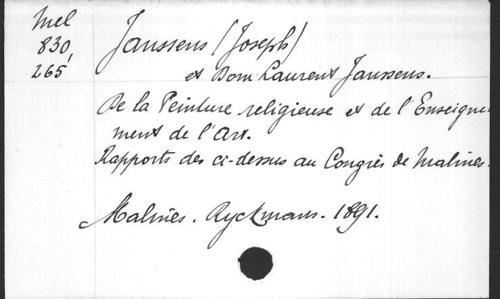 Mel
830,
265
Janssens (Joseph)
et Dom Laurent Janssens.
De la Peinture religieuse et de l'Enseigne
ment de l'Art.
Rapports des ci-dessus au Congrès de Malines.
Malines. Ryckmans. 1891.